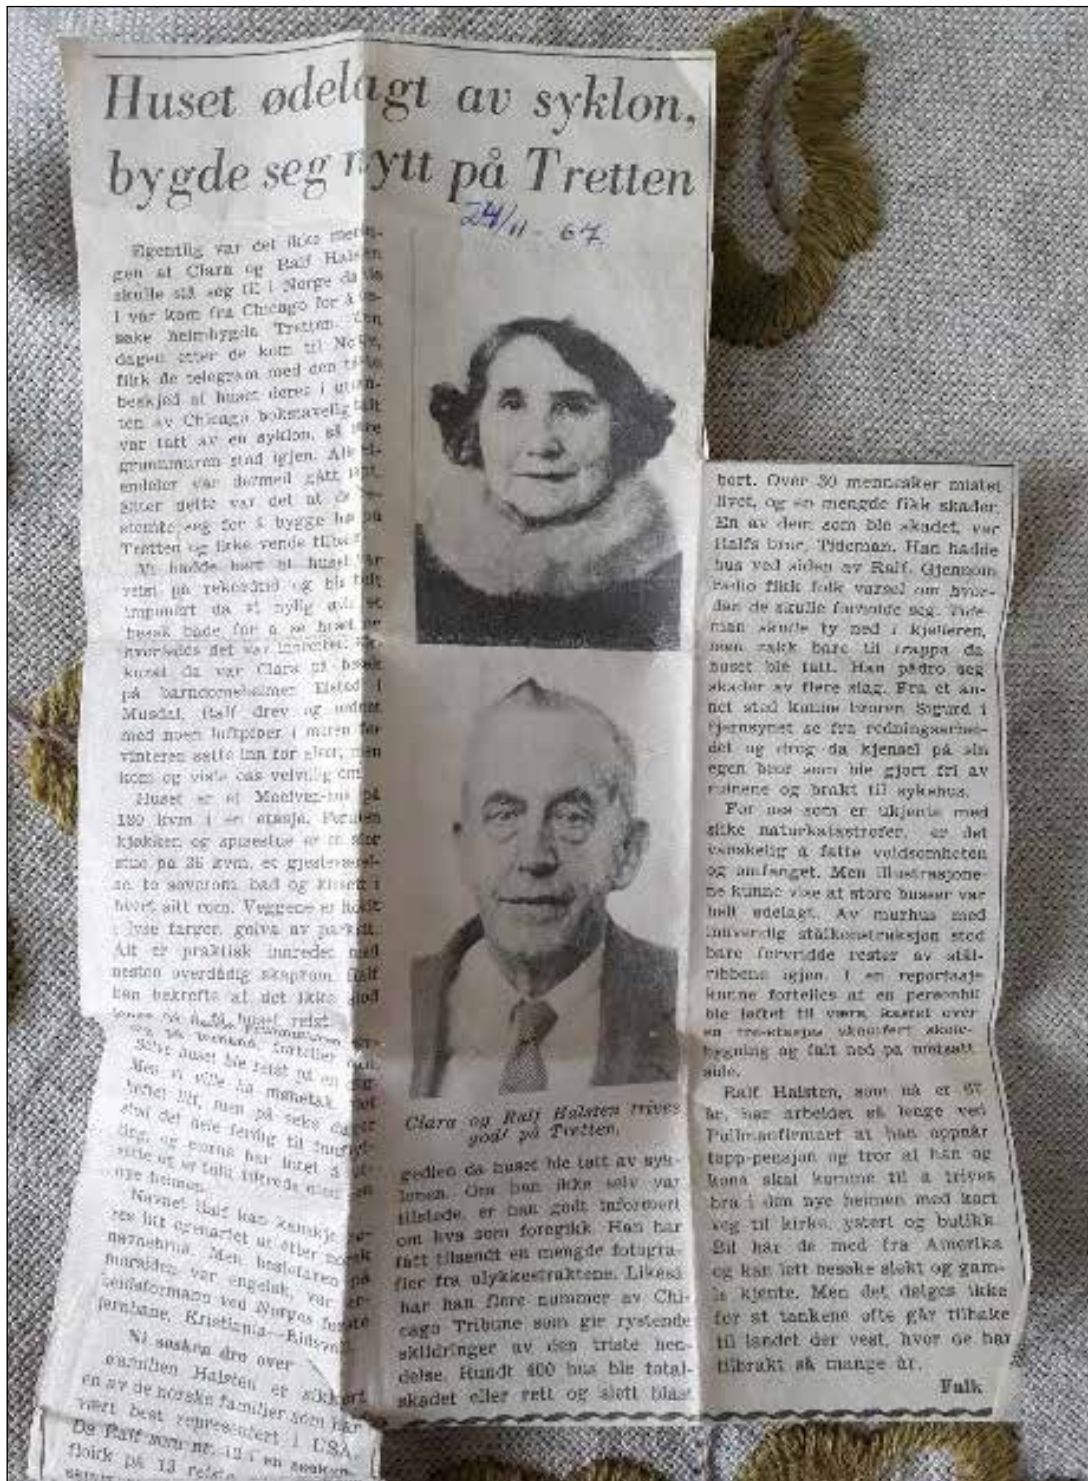 Huset ødelagt av syklon,
bygde seg nytt på Tretten
24/11 - 67
Eigentlig var det ikke menin-
gen at Clara og Ralf Halsten
skulle slå seg til i Norge da de
i vår kom fra Chicago for å be-
søke heimbygda Tretten. Den
dagen etter de kom til Norge,
fikk de telegram med den
beskjed at huset deres i utkan-
ten av Chicago bokstavelig talt
var tatt av en syklon, så bare
grunnmuren stod igjen. Alle ei-
endeler var dermed gått tapt.
Etter dette var det at de be-
stemte seg for å bygge hus på
Tretten og ikke vende tilbake.
Vi hadde hørt at huset var
reist på rekordtid og ble helt
imponert da vi nylig
besøk både for å se huset og
hvorledes det var innredet.
da var Clara på besøk
på barndomsheimen i
Musdal. Ralf drev og
med noen luftpiper i muren før
vinteren satte inn for alvor, men
kom og viste oss velvillig om.
Huset er et Moelven-hus på
120 kvm i en etasje. Foruten
kjøkken og spisestue er en stor
stue på 36 kvm, et gjesteværel-
se, to soverom, bad og klosett i
hvert sitt rom. Veggene er holdt
i lyse farger, golva av parkett.
Alt er praktisk innredet med
nesten overdådig skaprom. Ralf
kan bekrefte at det ikke stod
lenge på å få huset reist.
forteller
Selve huset ble reist på en dag.
Men vi ville ha
litt, men på seks dager
stod det hele ferdig til innflyt-
ting, og
nye heimen.
Navnet Ralf kan kanskje hø-
res litt egenartet ut etter norsk
navnebruk. Men bestefaren på
morsiden var engelsk, var ar-
beidsformann ved Norges første
jernbane, Kristiania—Eidsvoll.
Ni søsken dro over
Familien Halsten er sikkert
en av de norske familier som har
vært best representert i USA.
Da Ralf som nr. 12 i en søsken-
flokk på 13 reiste
Clara og Ralf Halsten trives
godt på Tretten.
gedien da huset ble tatt av syk-
lonen. Om han ikke selv var
tilstede, er han godt informert
om hva som foregikk. Han har
fått tilsendt en mengde fotogra-
fier fra ulykkestraktene. Likeså
har han flere nummer av Chi-
cago Tribune som gir rystende
skildringer av den triste hen-
delse. Rundt 400 hus ble total-
skadet eller rett og slett blåst
bort. Over 30 mennesker mistet
livet, og en mengde fikk skader.
En av dem som ble skadet, var
Ralfs bror, Tideman. Han hadde
hus ved siden av Ralf. Gjennom
radio fikk folk varsel om hvor-
dan de skulle forholde seg. Tide-
man skulle ty ned i kjelleren,
men rakk bare til trappa da
huset ble tatt. Han pådro seg
skader av flere slag. Fra et an-
net sted kunne broren Sigurd i
fjernsynet se fra redningsarbei-
det og drog da kjensel på sin
egen bror som ble gjort fri av
ruinene og brakt til sykehus.
For oss som er ukjente med
slike naturkatastrofer, er det
vanskelig å fatte voldsomheten
og omfanget. Men illustrasjone-
ne kunne vise at store busser var
helt ødelagt. Av murhus med
innvendig stålkonstruksjon stod
bare forvridde rester av stål-
ribbene igjen. I en reportasje
kunne fortelles at en personbil
ble løftet til værs, kastet over
en tre-etasjes uskadet skole-
bygning og falt ned på motsatt
side.
Ralf Halsten, som nå er 67
år, har arbeidet så lenge ved
Pullmanfirmaet at han oppnår
topp-pensjon og tror at han og
kona skal komme til å trives
bra i den nye heimen med kort
veg til kirke, ysteri og butikk.
Bil har de med fra Amerika
og kan lett besøke slekt og gam-
le kjente. Men det dølges ikke
for at tankene ofte går tilbake
til landet der vest, hvor de har
tilbrakt så mange år.
Falk